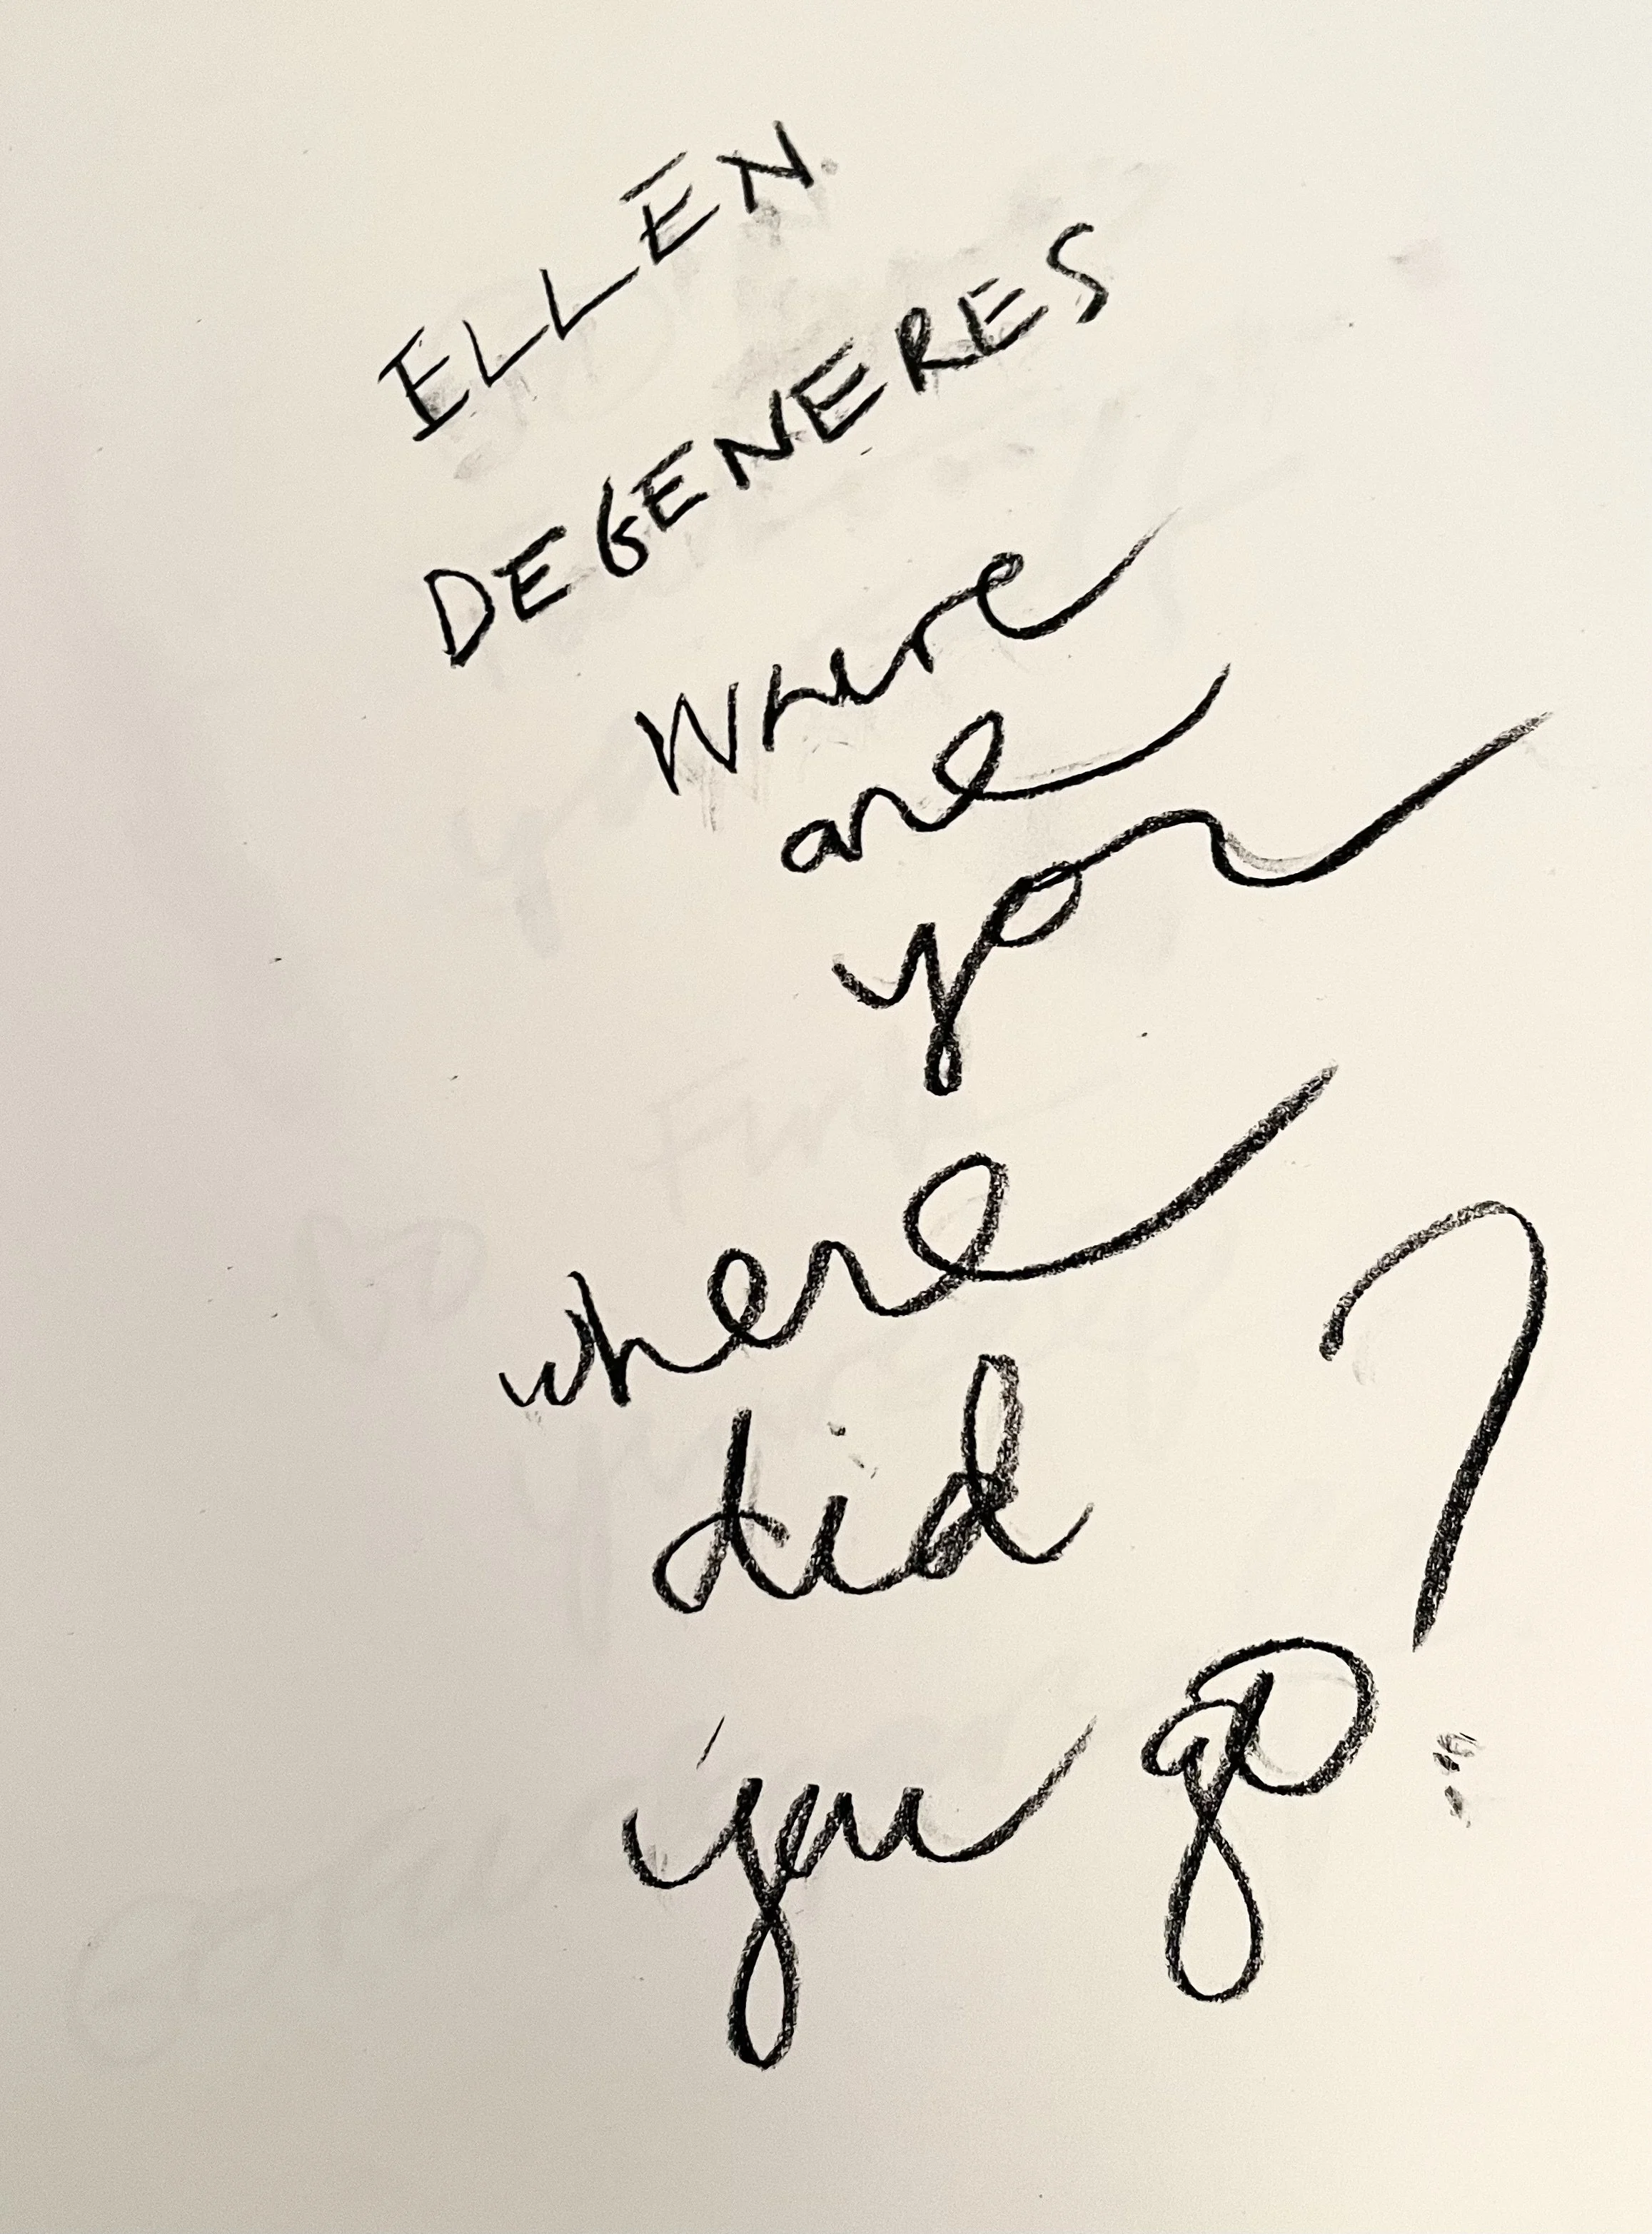 ELLEN
DEGENERES
Where
are
you
where
did
you go?